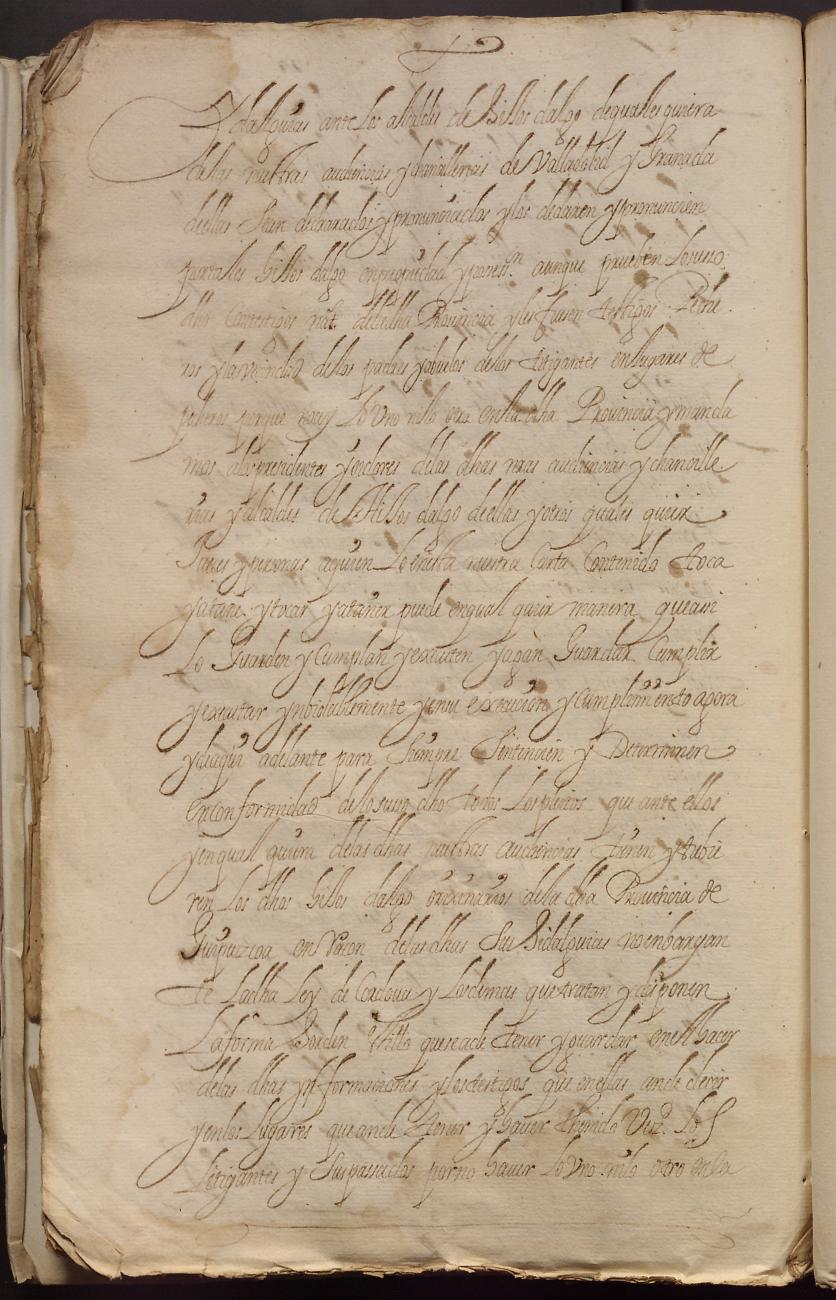 ydalguias ante los alcaldes de hijos dalgo de quales quiera
delas nuestras audiencias y chancillerias de Valladolid y Granada
dellas Sean declarados y pronunciados y los declaren y pronuncien
portales hijos dalgo en propiedad y poses.n aunque prueben lo suso
dho Contestigos nat. dela dha Provincia y les fueren testigos Peche
ros y la vecindad delos padres y abuelos delos litigantes en lugares de
pecheros porque no ay lo Uno ni lo otro en la dha Provincia y manda
mos alos presidentes y oydores delas dhas nras audiencias y chancille
rias y alcaldes de hijos dalgo dellas y otros quales quier
Jueces y personas aquien lo en esta nuestra Carta Contenido toca
y atañe y tocar y atañer puede en qual quier manera que assi
lo Guarden y Cumplan y executen y agan Guardar Cumplir
y executar ynbiolablemente y en su execucion y cumplimiento agora
y de aqui adelante para Siempre Sentencien y Determinen
en conformidad delo suso dho todos los pleitos que ante ellos
y en qual quiera delas dhas nuestras audiencias tienen y tubie
ren los dhos hijos dalgo originarios dela dha Provincia de
Guipuzcoa en Racon delas dhas Sus hidalguias no enbargan
te la dha ley de Cordova y las demas que tratan y disponen
la forma horden y estilo que se a de tener y guardar en el hacer
delas dhas ynformaciones y los testigos que en ellas an de decir
y en los lugares que an de tener y haver thenido Vez.d los
litigantes y Sus passados por no haver lo Uno ni lo otro en la